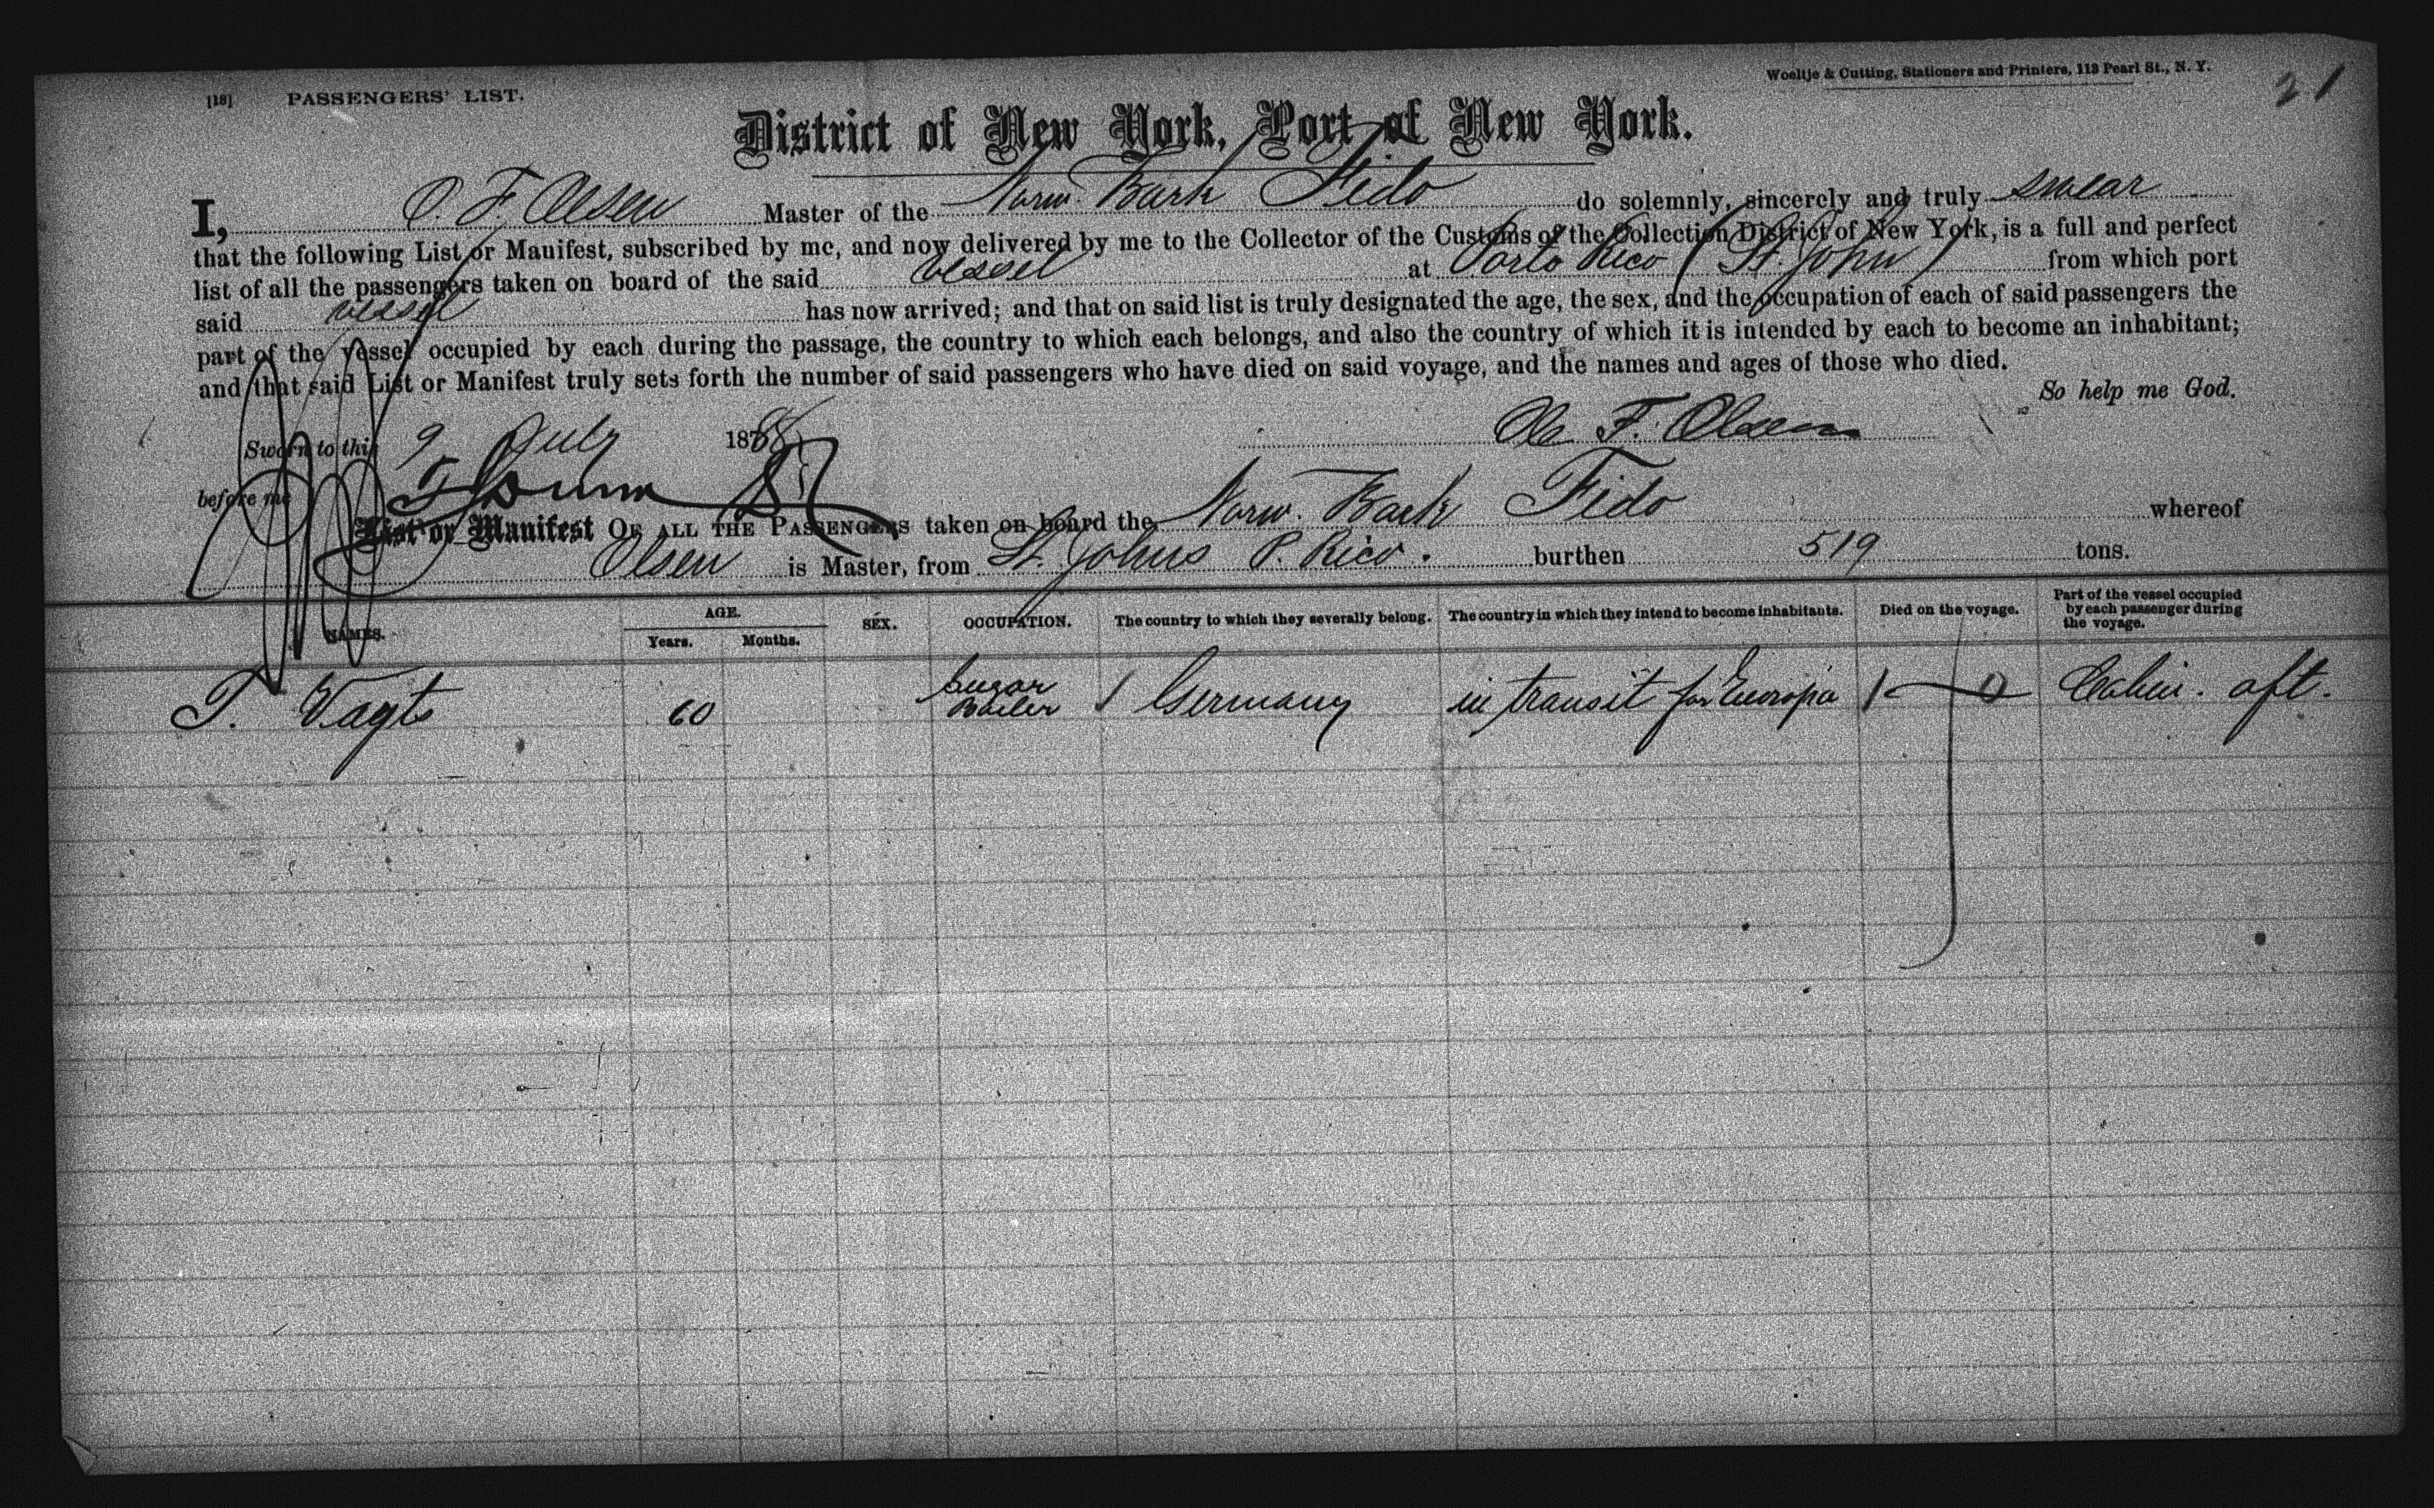 [18] PASSENGERS' LIST.
Woeltje & Cutting, Stationers and Printers, 113 Pearl St., N. Y.
21
District of New York, Port of New York.
I, O. F. Olsen Master of the Norw. Bark Fido do solemnly, sincerely and truly swear
that the following List or Manifest, subscribed by me, and now delivered by me to the Collector of the Customs of the Collection District of New York, is a full and perfect
list of all the passengers taken on board of the said vessel at Porto Rico (St. John) from which port
said vessel has now arrived; and that on said list is truly designated the age, the sex, and the occupation of each of said passengers the
part of the vessel occupied by each during the passage, the country to which each belongs, and also the country of which it is intended by each to become an inhabitant;
and that said List or Manifest truly sets forth the number of said passengers who have died on said voyage, and the names and ages of those who died.
So help me God.
Sworn to this 9 July 1888 Ole F. Olsen
before me
List or Manifest OF ALL THE PASSENGERS taken on board the Norw. Bark Fido whereof
Olsen is Master, from St. Johns P. Rico. burthen 519 tons.
NAMES. AGE. Years. Months. SEX. OCCUPATION. The country to which they severally belong. The country in which they intend to become inhabitants. Died on the voyage. Part of the vessel occupied by each passenger during the voyage.
T. Vagts 60 Sugar Boiler Germany in transit for Europa 0 Cabin. aft.